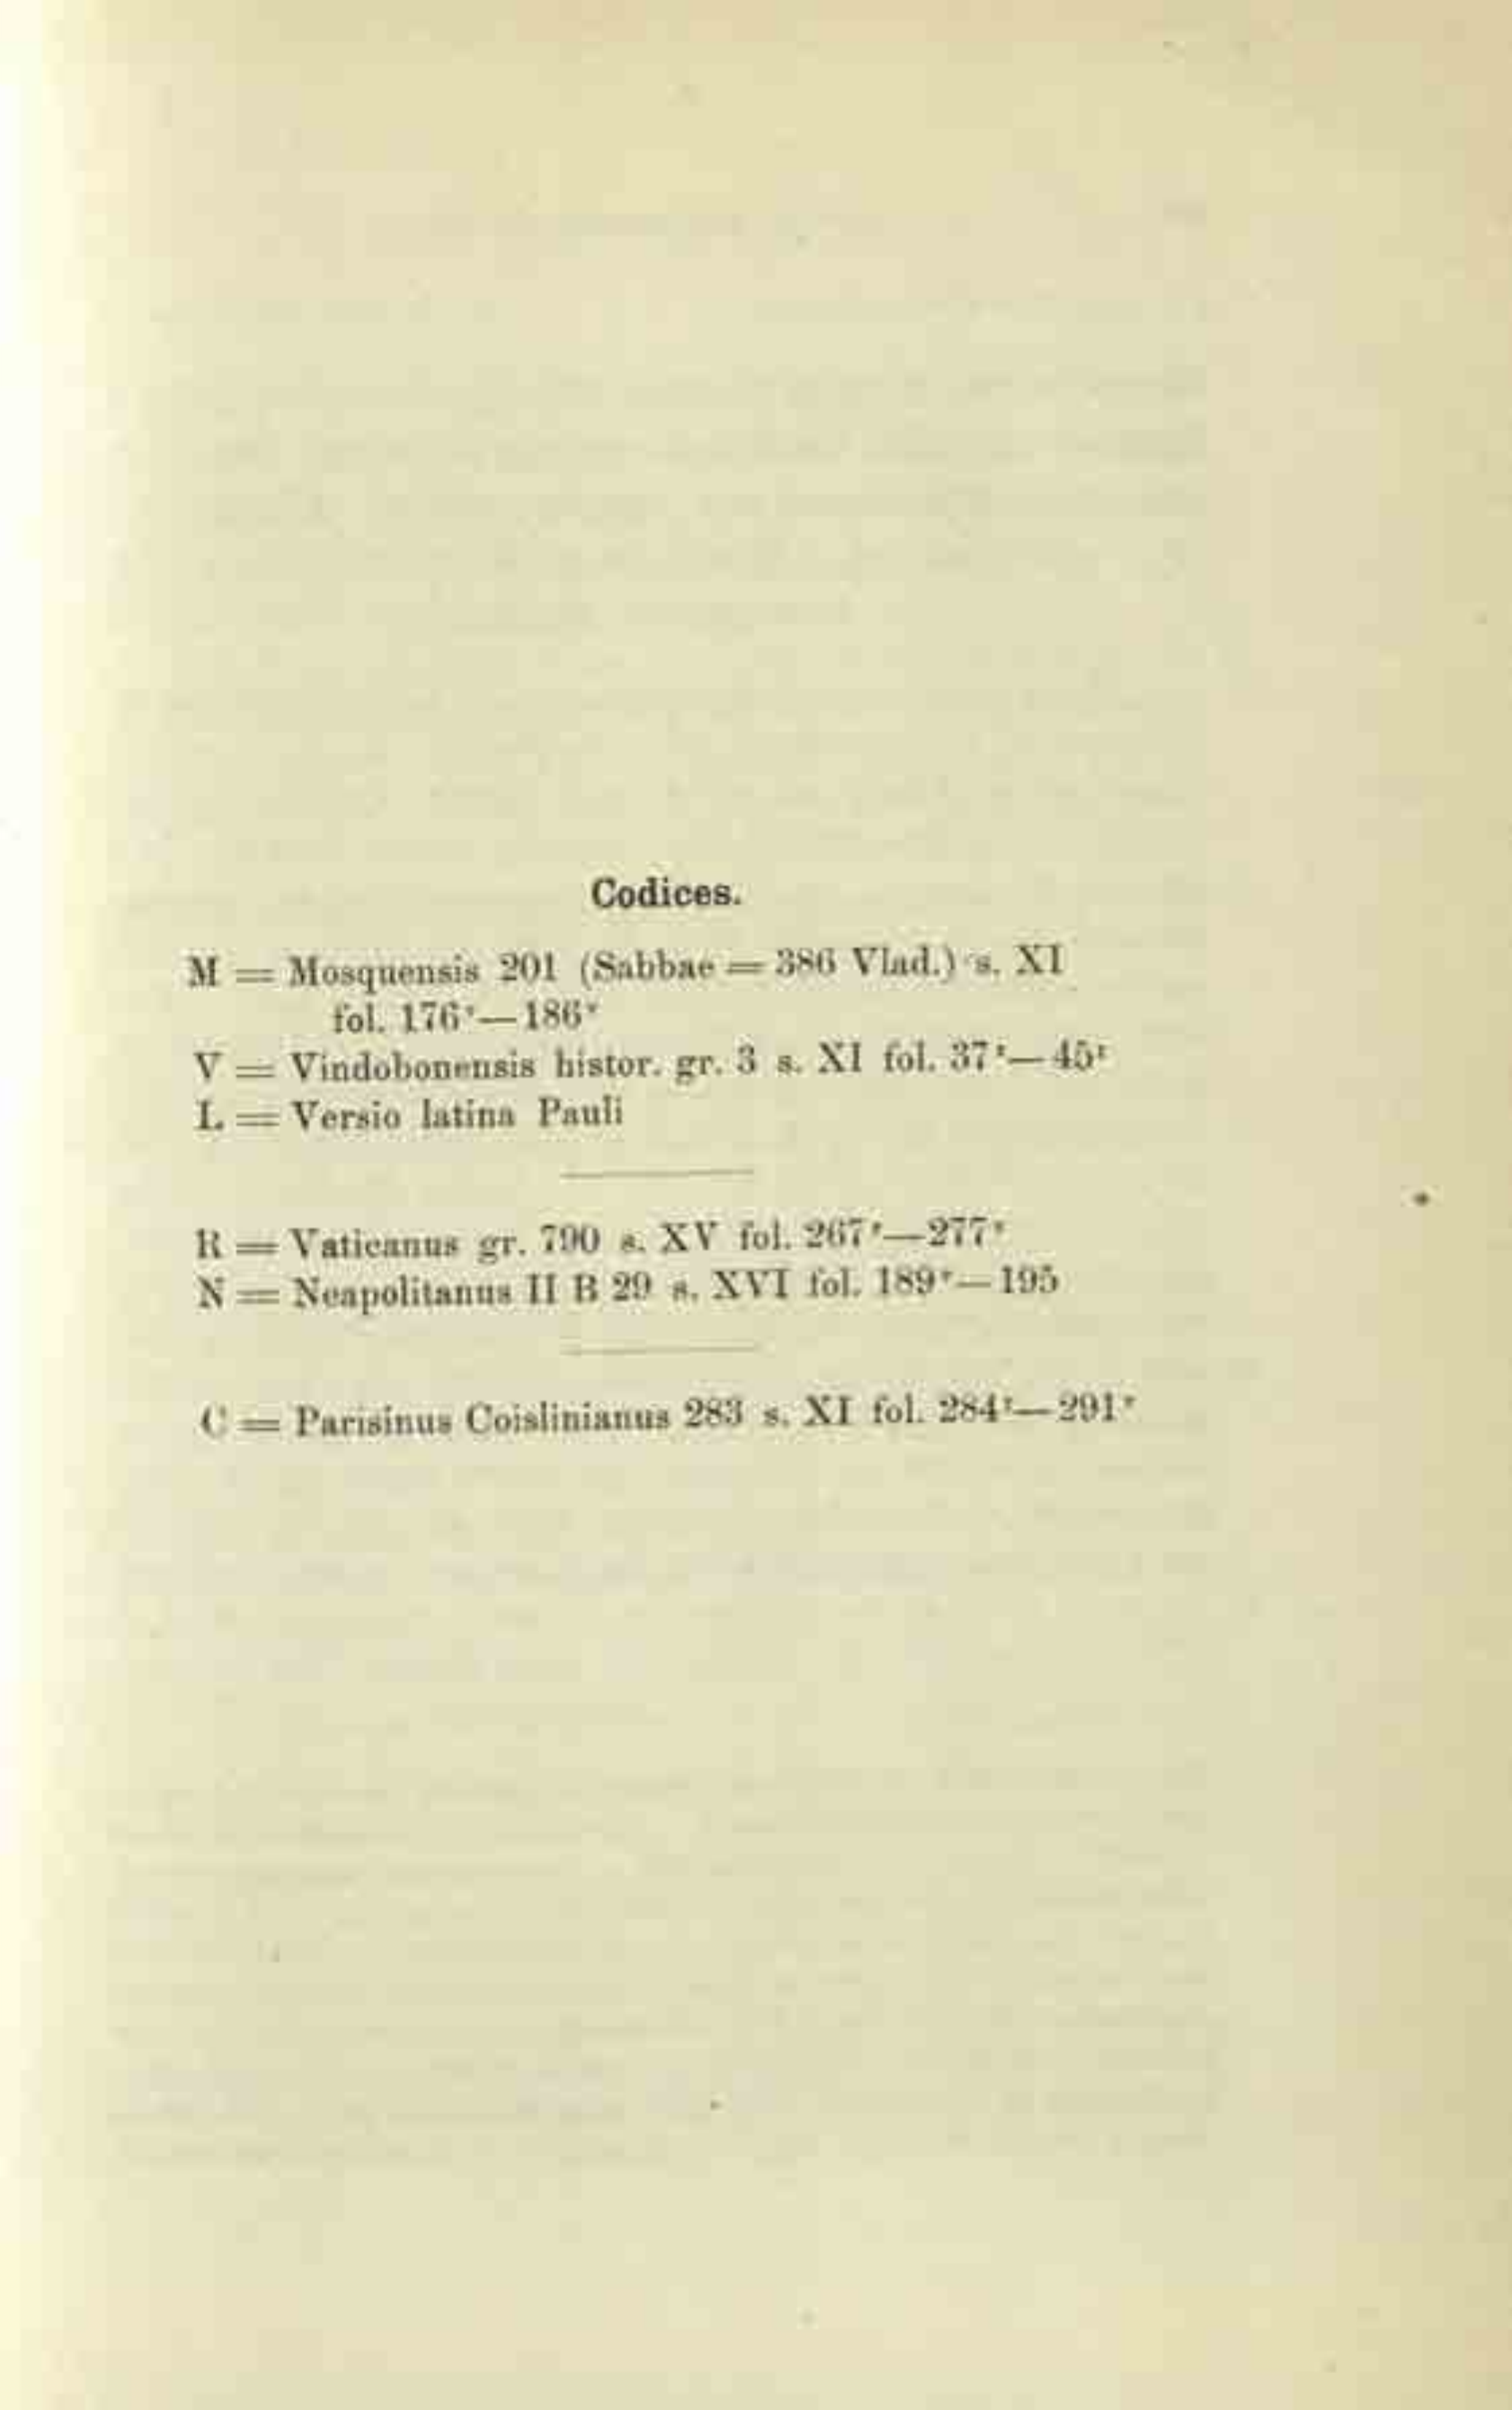 Codices.
M = Mosquensis 201 (Sabbae = 386 Vlad.) s. XI
fol. 176ʳ—186ᵛ
V = Vindobonensis histor. gr. 3 s. XI fol. 37ʳ—45ʳ
L = Versio latina Pauli
R = Vaticanus gr. 790 s. XV fol. 267ʳ—277ᵛ
N = Neapolitanus II B 29 s. XVI fol. 189ᵛ—195
C = Parisinus Coislinianus 283 s. XI fol. 284ʳ—291ᵛ